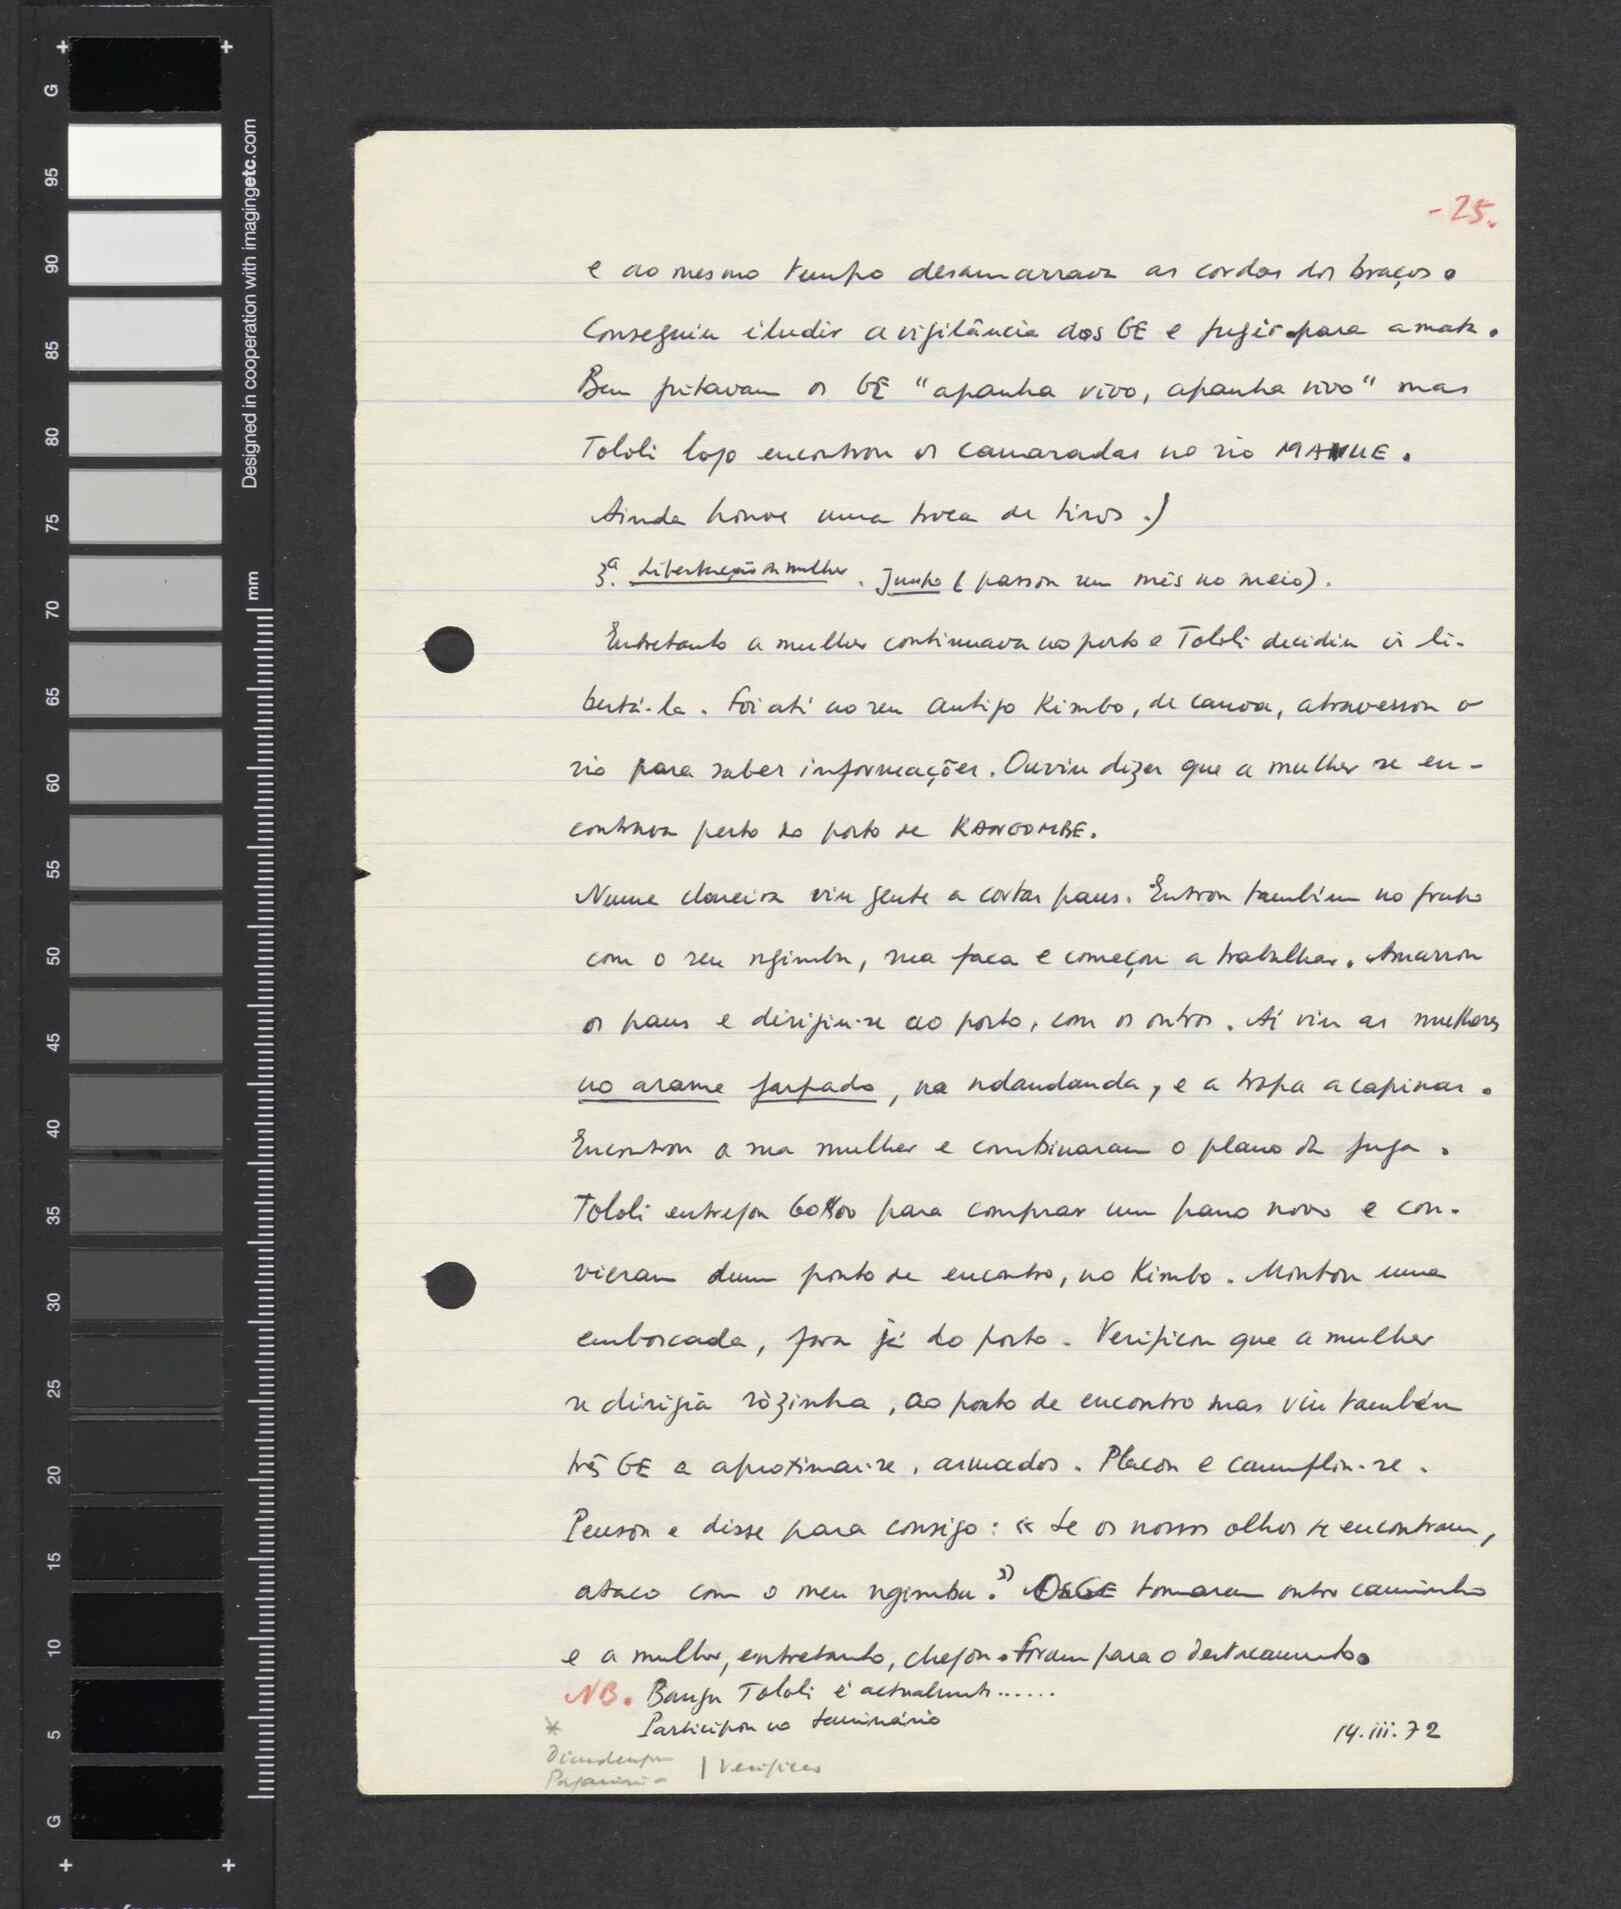 -25.
e ao mesmo tempo desamarrava as cordas dos braços.
Conseguiu iludir a vigilância dos GE e fugir para a mata.
Bem gritavam os GE "apanha vivo, apanha vivo" mas
Tololi logo encontrou os camaradas no rio
Ainda houve uma troca de tiros.)
3ª. Libertação da mulher. Junho (passou um mês no meio).
Entretanto a mulher continuava no posto e Tololi decidiu ir li-
bertá-la. Foi até ao seu antigo Kimbo, de canoa, atravessou o
rio para saber informações. Ouviu dizer que a mulher se en-
contrava perto do posto de KANGOMBE.
Numa clareira viu gente a cortar paus. Entrou também no grupo
com o seu ngimbu, sua faca e começou a trabalhar. Amarrou
os paus e dirigiu-se ao posto, com os outros. Aí viu as mulheres
no arame farpado, na ndandanda, e a tropa a capinar.
Encontrou a sua mulher e combinaram o plano da fuga.
Tololi entregou 60$00 para comprar um pano novo e con-
vieram dum ponto de encontro, no Kimbo. Montou uma
emboscada, fora já do posto. Verificou que a mulher
se dirigia sòzinha, ao ponto de encontro mas viu também
três GE a aproximar-se, armados. Placou e camuflou-se.
Pensou e disse para consigo: «Se os nossos olhos se encontram,
ataco com o meu ngimbu.» Os GE tomaram outro caminho
e a mulher, entretanto, chegou. Foram para o destacamento.
NB. Bangu Tololi é actualmente ......
* Participou no Seminário
14.iii.72
| Verificar